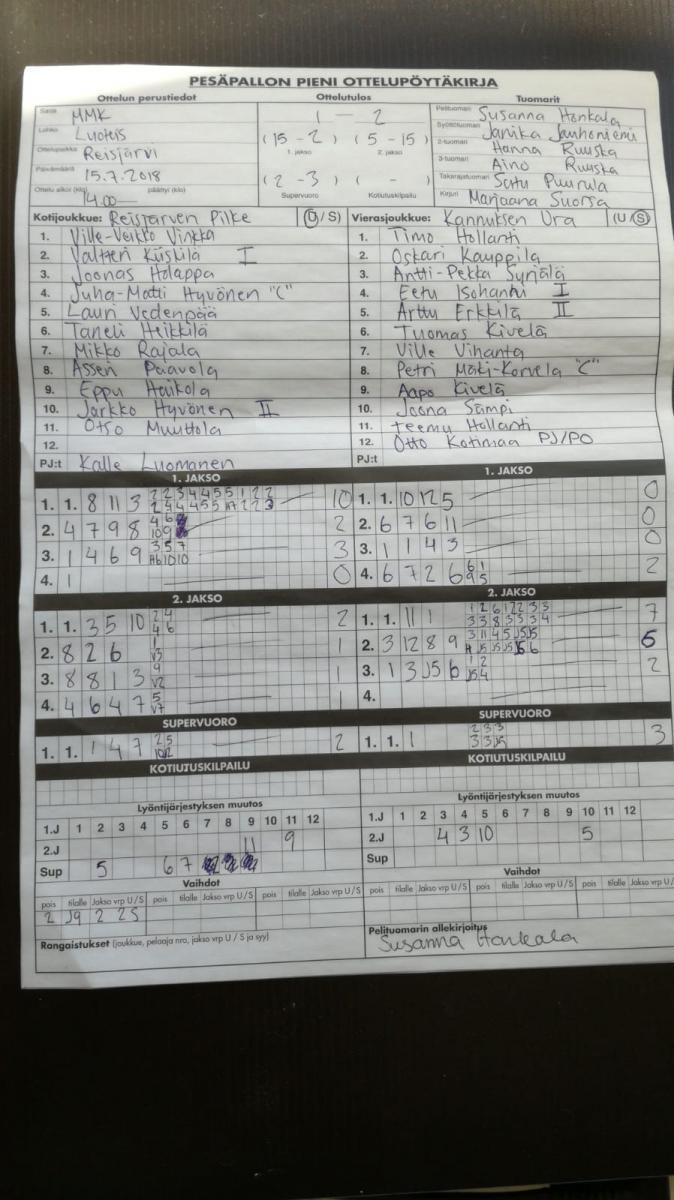 PESÄPALLON PIENI OTTELUPÖYTÄKIRJA
Ottelun perustiedot Ottelutulos Tuomarit
Sarja MMK
Lohko Luoteis
Ottelupaikka Reisjärvi
Päivämäärä 15.7.2018
Ottelu alkoi (klo) 14.00 päättyi (klo)
1 – 2
(15 - 2) (5 - 15)
1. jakso 2. jakso
(2 - 3) ( - )
Supervuoro Kotiutuskilpailu
Pelituomari Susanna Honkala
Syöttötuomari Janika Jauhoniemi
2-tuomari Hanna Ruuska
3-tuomari Aino Ruuska
Takarajatuomari Satu Puurula
Kirjuri Marjaana Suorsa
Kotijoukkue: Reisjärven Pilke (U/S)
1. Ville-Veikko Vinkka
2. Valtteri Kiiskilä I
3. Joonas Holappa
4. Juha-Matti Hyvönen "C"
5. Lauri Vedenpää
6. Taneli Heikkilä
7. Mikko Rajala
8. Asseri Paavola
9. Eppu Haikola
10. Jarkko Hyvönen II
11. Otso Muuttola
12.
PJ:t Kalle Luomanen
Vierasjoukkue: Kannuksen Ura (U/S)
1. Timo Hollanti
2. Oskari Kauppila
3. Antti-Pekka Syrjälä
4. Eetu Isohanni I
5. Arttu Erkkilä II
6. Tuomas Kivelä
7. Ville Vihanta
8. Petri Mäki-Korvela "C"
9. Aapo Kivelä
10. Joona Sämpi
11. Teemu Hollanti
12. Otto Kotimaa PJ/PO
PJ:t
1. JAKSO
1. 1. 8 11 3 10
2. 4 7 9 8 2
3. 1 4 6 9 3
4. 1 0
2. JAKSO
1. 1. 3 5 10 2 4 2
4 6
2. 8 2 6 1
3. 8 8 1 3 1
4. 4 6 4 7 1
SUPERVUORO
1. 1. 1 4 7 2 5 2
KOTIUTUSKILPAILU
1. JAKSO
1. 1. 10 12 5 0
2. 6 7 6 11 0
3. 1 1 4 3 0
4. 6 7 2 6 2
2. JAKSO
1. 1. 11 1 1 2 6 1 2 2 3 3 7
3 3 8 3 3 3 4
2. 3 12 8 9 6
3. 1 3 J5 6 1 2 2
4.
SUPERVUORO
1. 1. 1 2 3 3 3
KOTIUTUSKILPAILU
Lyöntijärjestyksen muutos
1.J 1 2 3 4 5 6 7 8 9 10 11 12
9
2.J 11
Sup 5 6 7
Vaihdot
pois tilalle Jakso vrp U/S pois tilalle Jakso vrp U/S pois tilalle Jakso vrp U/S
2 J9 2 2S
Rangaistukset (joukkue, pelaaja nro, jakso vrp U / S ja syy)
Lyöntijärjestyksen muutos
1.J 1 2 3 4 5 6 7 8 9 10 11 12
2.J 4 3 10 5
Sup
Vaihdot
pois tilalle Jakso vrp U/S pois tilalle Jakso vrp U/S pois tilalle Jakso vrp U/S
Pelituomarin allekirjoitus
Susanna Honkala